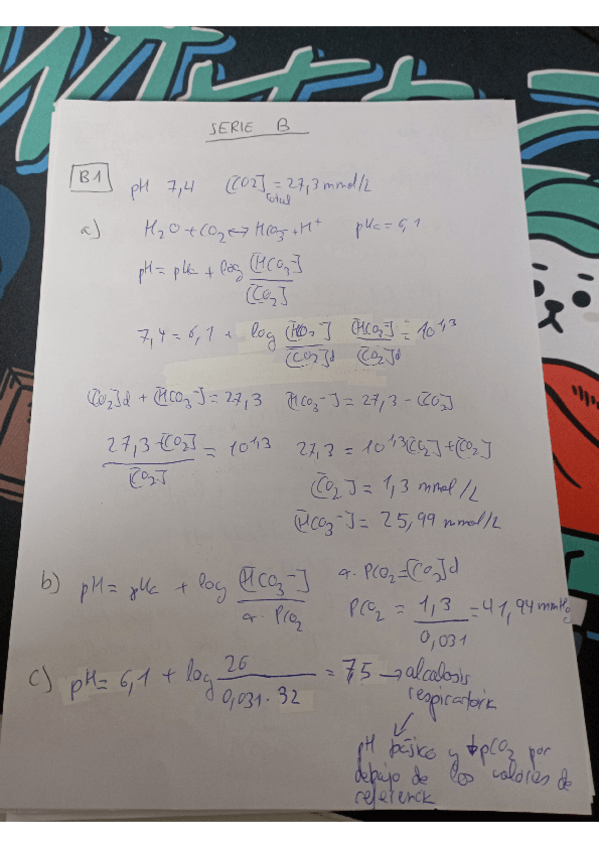 SERIE B
B1 pH 7,4 [CO2]total = 27,3 mmol/L
a) H2O + CO2 ↔ HCO3⁻ + H⁺ pKa = 6,1
pH = pKa + log [HCO3⁻]/[CO2]
7,4 = 6,1 + log [HCO3⁻]/[CO2]d [HCO3⁻]/[CO2]d = 10^1,3
[CO2]d + [HCO3⁻] = 27,3 [HCO3⁻] = 27,3 - [CO2]
27,3 - [CO2]/[CO2] = 10^1,3 27,3 = 10^1,3 [CO2] + [CO2]
[CO2] = 1,3 mmol/L
[HCO3⁻] = 25,99 mmol/L
b) pH = pKa + log [HCO3⁻]/α · PCO2 α · PCO2 = [CO2]d
PCO2 = 1,3/0,031 = 41,94 mmHg
c) pH = 6,1 + log 26/0,031 · 32 = 7,5 → alcalosis
respiratoria
pH básico y ↓pCO2 por
debajo de los valores de
referencia